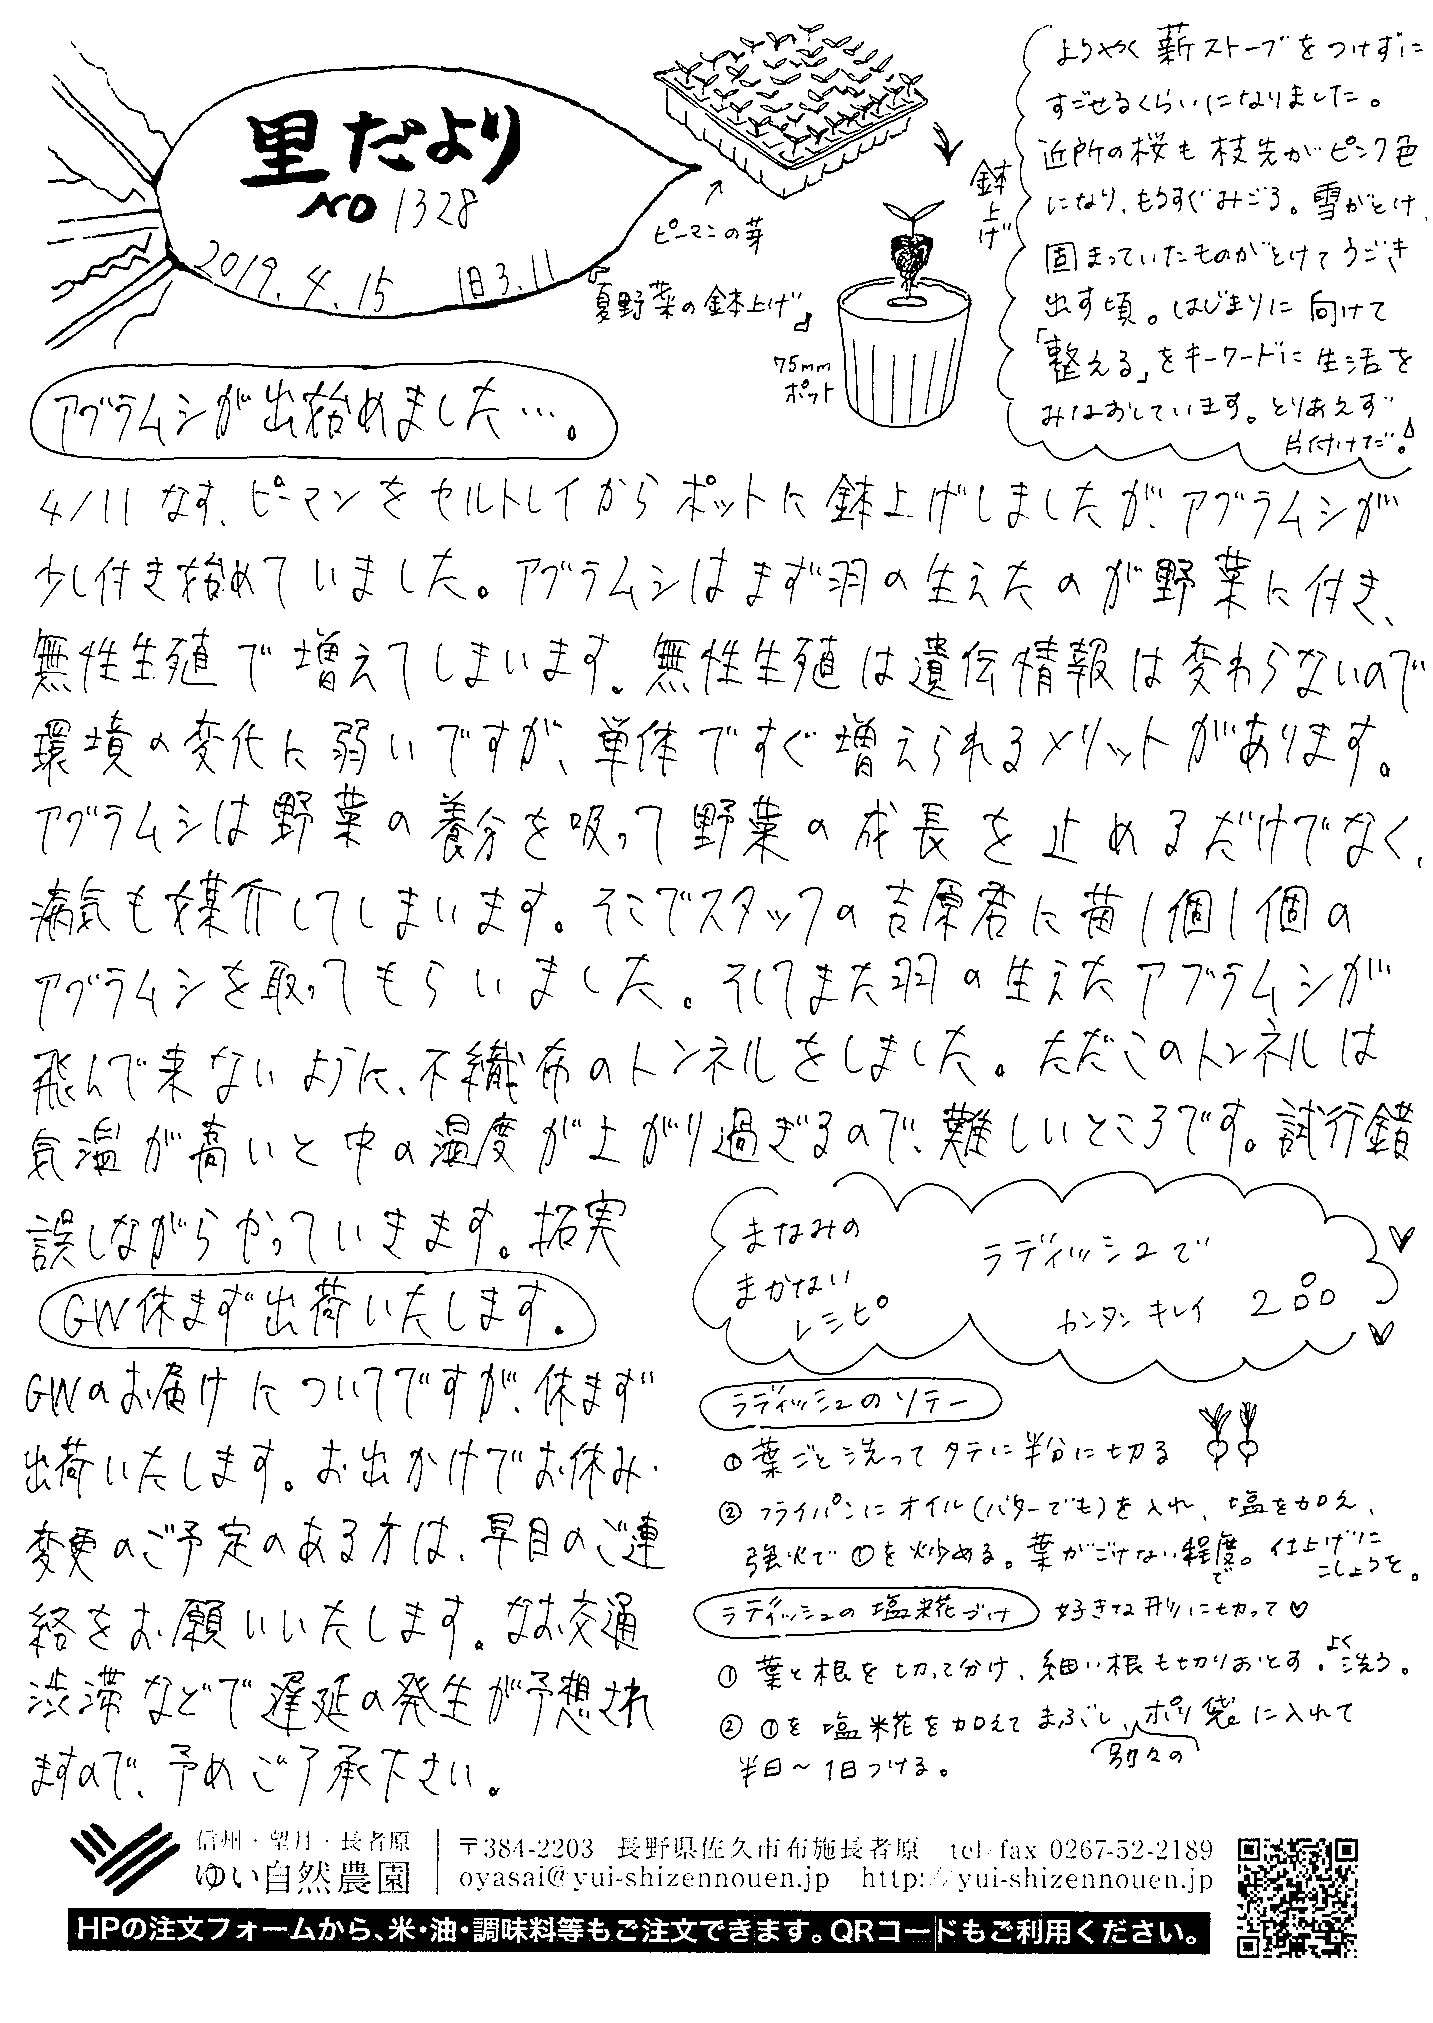 里だより
NO 1328
2019.4.15 旧3.11
ピーマンの芽
鉢上げ
夏野菜の鉢上げ♪
75mm
ポット
ようやく薪ストーブをつけずに
すごせるくらいになりました。
近所の桜も枝先がピンク色
になり、もうすぐみごろ。雪がとけ、
固まっていたものがとけてうごき
出す頃。はじまりに向けて
「整える」をキーワードに生活を
みなおしています。とりあえず
片付けだ!
アブラムシが出始めました…。
4/11 なす、ピーマンをセルトレイからポットに鉢上げしましたが、アブラムシが
少し付き始めていました。アブラムシはまず羽の生えたのが野菜に付き、
無性生殖で増えてしまいます。無性生殖は遺伝情報は変わらないので
環境の変化に弱いですが、単体ですぐ増えられるメリットがあります。
アブラムシは野菜の養分を吸って野菜の成長を止めるだけでなく、
病気も媒介してしまいます。そこでスタッフの吉原君に苗1個1個の
アブラムシを取ってもらいました。そしてまた羽の生えたアブラムシが
飛んで来ないように、不織布のトンネルをしました。ただこのトンネルは
気温が高いと中の温度が上がり過ぎるので、難しいところです。試行錯
誤しながらやっていきます。拓実
GW休まず出荷いたします。
GWのお届けについてですが、休まず
出荷いたします。お出かけでお休み・
変更のご予定のある方は、早目のご連
絡をお願いいたします。なお交通
渋滞などで遅延の発生が予想され
ますので、予めご了承下さい。
まなみの
まかない
レシピ
ラディッシュで
カンタン キレイ 2品
ラディッシュのソテー
① 葉ごと洗ってタテに半分に切る
② フライパンにオイル(バターでも)を入れ、塩を加え、
強火で①を炒める。葉がこげない程度で。仕上げに
こしょうを。
ラディッシュの塩糀づけ 好きな形に切って♡
① 葉と根を切って分け、細い根も切りおとす。よく洗う。
② ①を塩糀を加えてまぶし、別々のポリ袋に入れて
半日~1日つける。
信州・望月・長者原
ゆい自然農園
〒384-2203 長野県佐久市布施長者原 tel・fax 0267-52-2189
oyasai@yui-shizennouen.jp http://yui-shizennouen.jp
HPの注文フォームから、米・油・調味料等もご注文できます。QRコードもご利用ください。